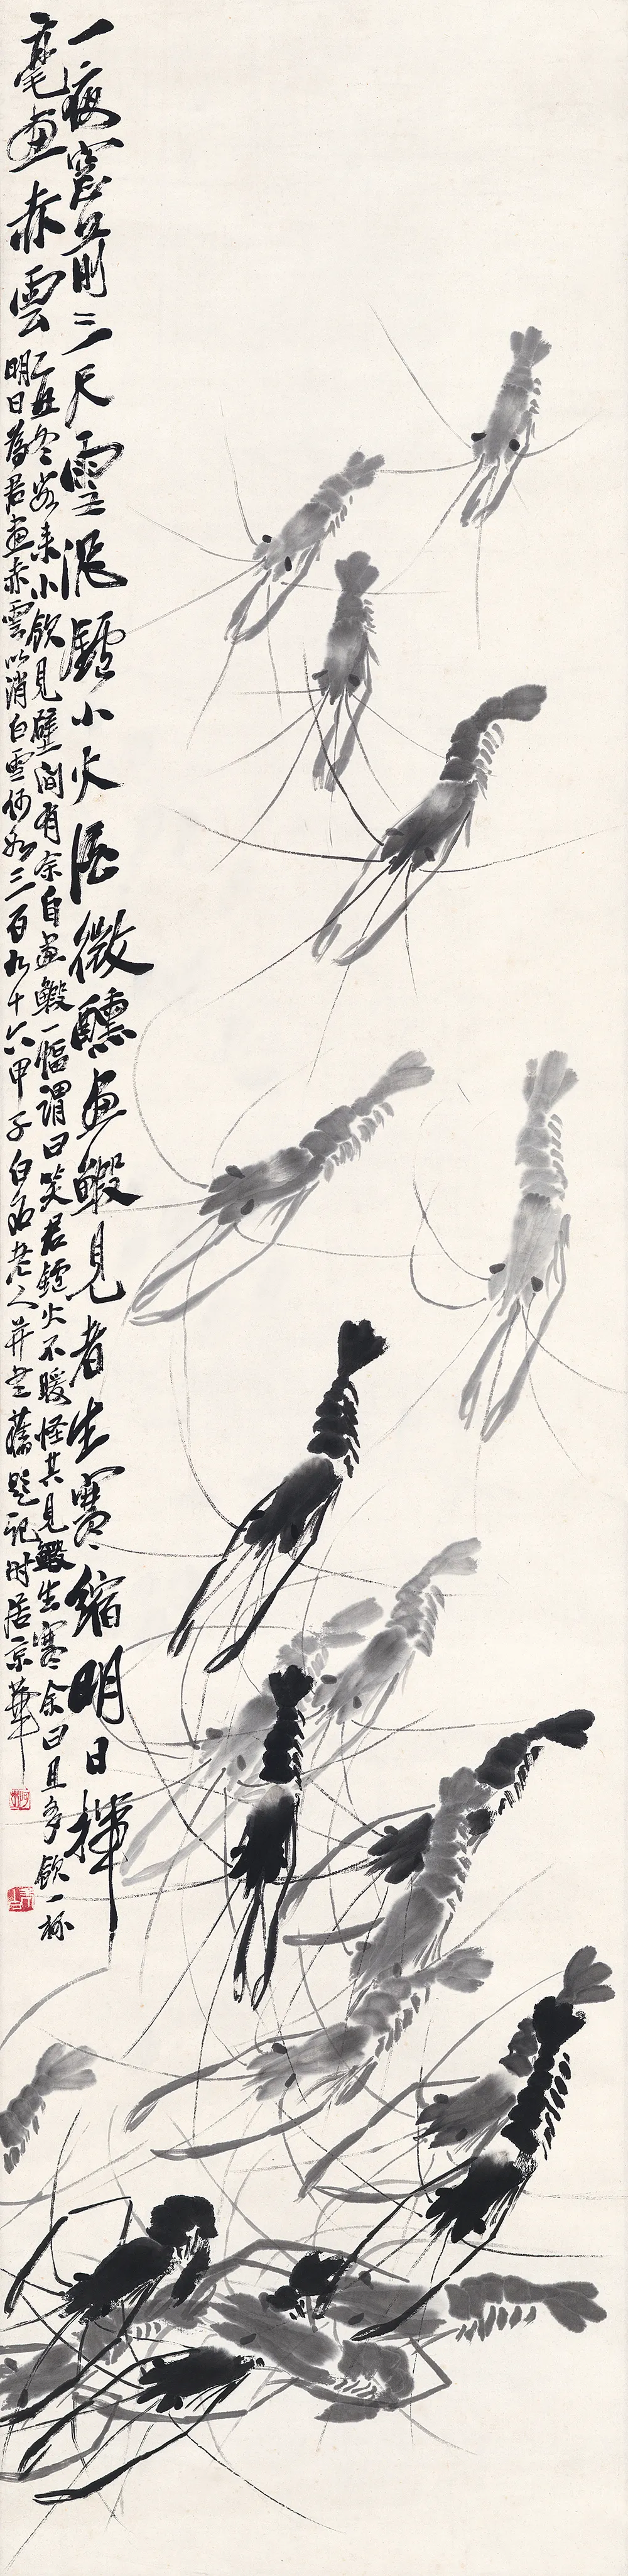 一夜窗前三尺雪泥鑪小火酒微醺畫鰕見者生寒縮明日揮
毫畫赤雲
乙丑冬客來小飲見壁間有余自畫鰕一幅謂曰笑君鑪火不暖怪其見鰕生寒余曰且多飲一杯
明日為君畫赤雲以消白雪何如三百九十六甲子白石老人并書舊題記時居京華